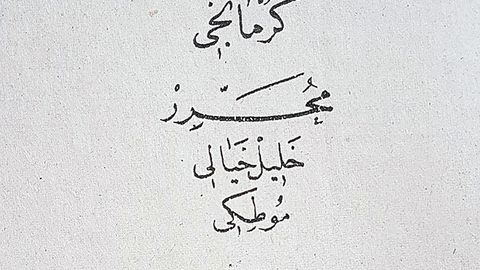 كُرْمَانْجِي
مُحَرِّرِْ
خَلِيلْ خَيَالِي
مُوطِكِي